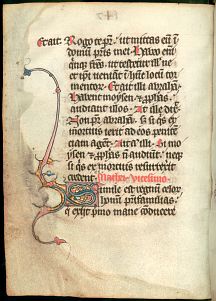 Erait. Rogo te pr̄. ut mittas eū ī
domū pr̄is mei. Habeo enī
quīqꝫ frēs. ut testetur ill̓ ne
et ip̄i veniant ī hūc locū tor
mentoꝝ. Et ait illi abrahā.
Habent moysen ⁊ ꝓphas.
audiant illos. At ille dix̄.
Non pr̄ abrahā. si si qͥs ex
mortuis ierit ad eos peniten
ciam agēt. Ait a. illi. Si moy
sen ⁊ ꝓphas nō audiūt. neqꝫ
si qͥs ex mortuis resurrexit
credent. Matheī vicesimo.
Simile est regnū celoꝝ
homī pat̓familias.
q̄ exiit primo mane cōducere